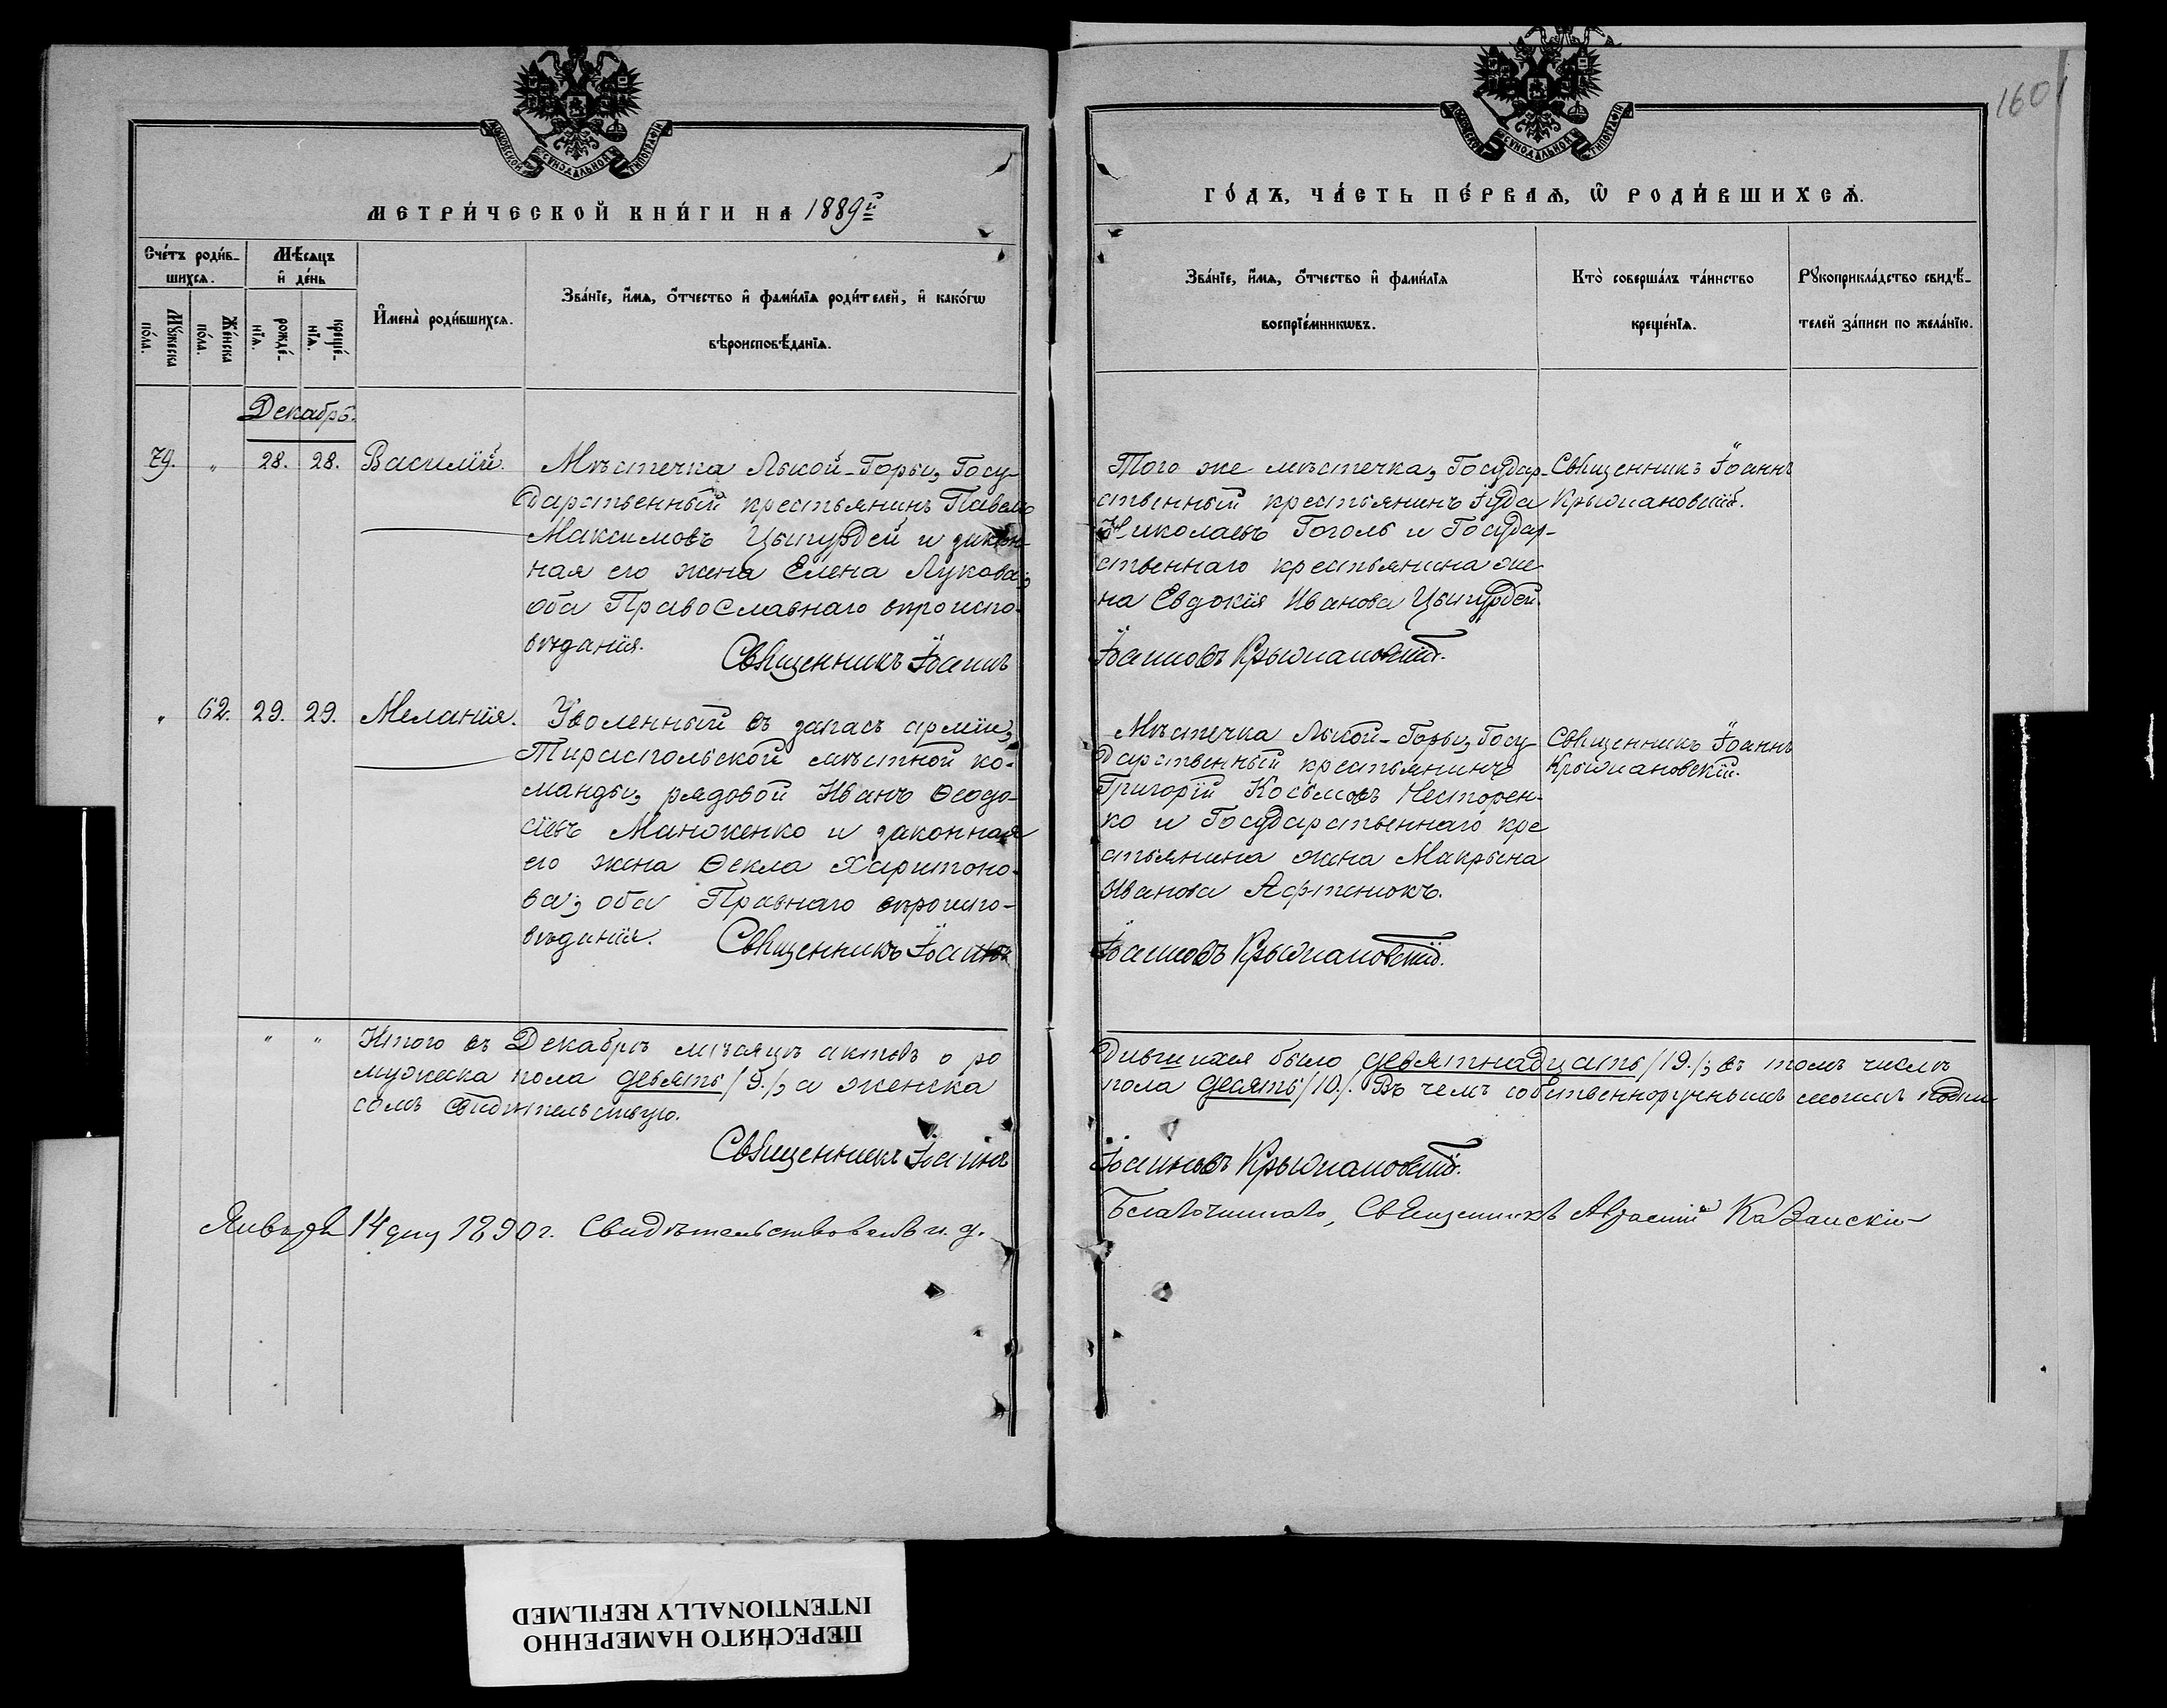 160
МОСКОВСКОЙ СѴНОДАЛЬНОЙ ТИПОГРАФІИ
МОСКОВСКОЙ СѴНОДАЛЬНОЙ ТИПОГРАФІИ
МЕТРИ́ЧЕСКОЙ КНИ́ГИ НА 1889й
ГО́ДЪ, ЧА́СТЬ ПЕ́РВАѦ, Ѿ РОДИ́ВШИХСѦ.
Сче́тъ роди́в-
шихсѧ.
Мѣ́сѧцъ
и҆ де́нь
Мꙋ́жеска
по́ла.
Же́нска
по́ла.
рожде́-
нїѧ.
креще́-
нїѧ.
И҆мена̀ роди́вшихсѧ.
Зва́нїе, и҆́мѧ, ѻ҆́тчество и҆ фами́лїѧ роди́телей, и҆ како́гѡ
вѣроисповѣ́данїѧ.
Зва́нїе, и҆́мѧ, ѻ҆́тчество и҆ фами́лїѧ
воспрїе́мникѡвъ.
Кто̀ соверша́лъ та́инство
креще́нїѧ.
Рꙋкоприкла́дство свидѣ́-
телей за́писи по жела́нїю.
Декабрь.
79. " 28. 28. Василій.
Мѣстечка Лысой-Горы, Госу-
дарственный крестьянинъ Павелъ
Максимовъ Цыгурдей и закон-
ная его жена Елена Лукова;
оба Православнаго вѣроиспо-
вѣданія.
Священникъ Іоаннъ
Того же мѣстечка, Государ-
ственный крестьянинъ Іуда
Николаевъ Гоголь и Государ-
ственнаго крестьянина же-
на Евдокія Иванова Цыгурдей.
Іоанновъ Крыжановскій.
Священникъ Іоаннъ
Крыжановскій.
" 62. 29. 29. Меланія.
Уволенный въ запасъ арміи,
Тираспольской мѣстной ко-
манды, рядовой Иванъ Ѳеодо-
сіевъ Манюженко и законная
его жена Ѳекла Харитоно-
ва; оба Правнаго вѣроиспо-
вѣданія.
Священникъ Іоаннъ
Мѣстечка Лысой-Горы, Госу-
дарственный крестьянинъ
Григорій Косьмовъ Несторен-
ко и Государственнаго кре
стьянина жена Макрина
Иванова Афтенюкъ.
Іоанновъ Крыжановскій.
Священникъ Іоаннъ
Крыжановскій.
" " Итого въ Декабрѣ мѣсяцѣ актовъ о ро
дившихся было девятнадцать /19./; въ томъ числѣ
мужеска пола девять /9./, а женска
пола десять /10./. Въ чемъ собственноручнымъ моимъ подпи
сомъ свидѣтельствую.
Священникъ Іоаннъ
Іоанновъ Крыжановскій.
Января 14 дня 1890 г. Свидѣтельствовалъ и. д.
Благочиннаго, Священникъ Казанскій
ПЕРЕСНЯТО НАМЕРЕННО
INTENTIONALLY REFILMED